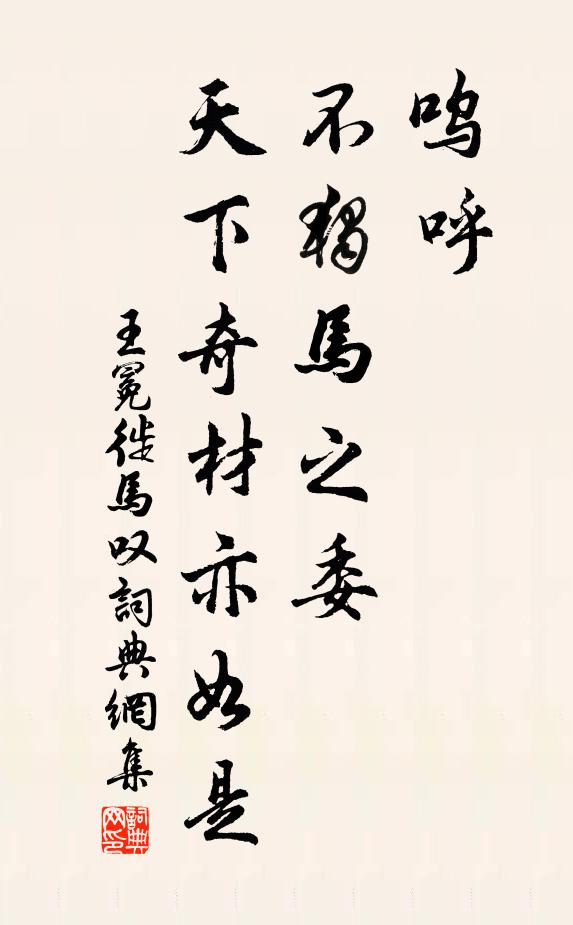 呜呼
不獨馬之委
天下奇材亦如是
王冕徙馬叹詞典網集
詞典
网印